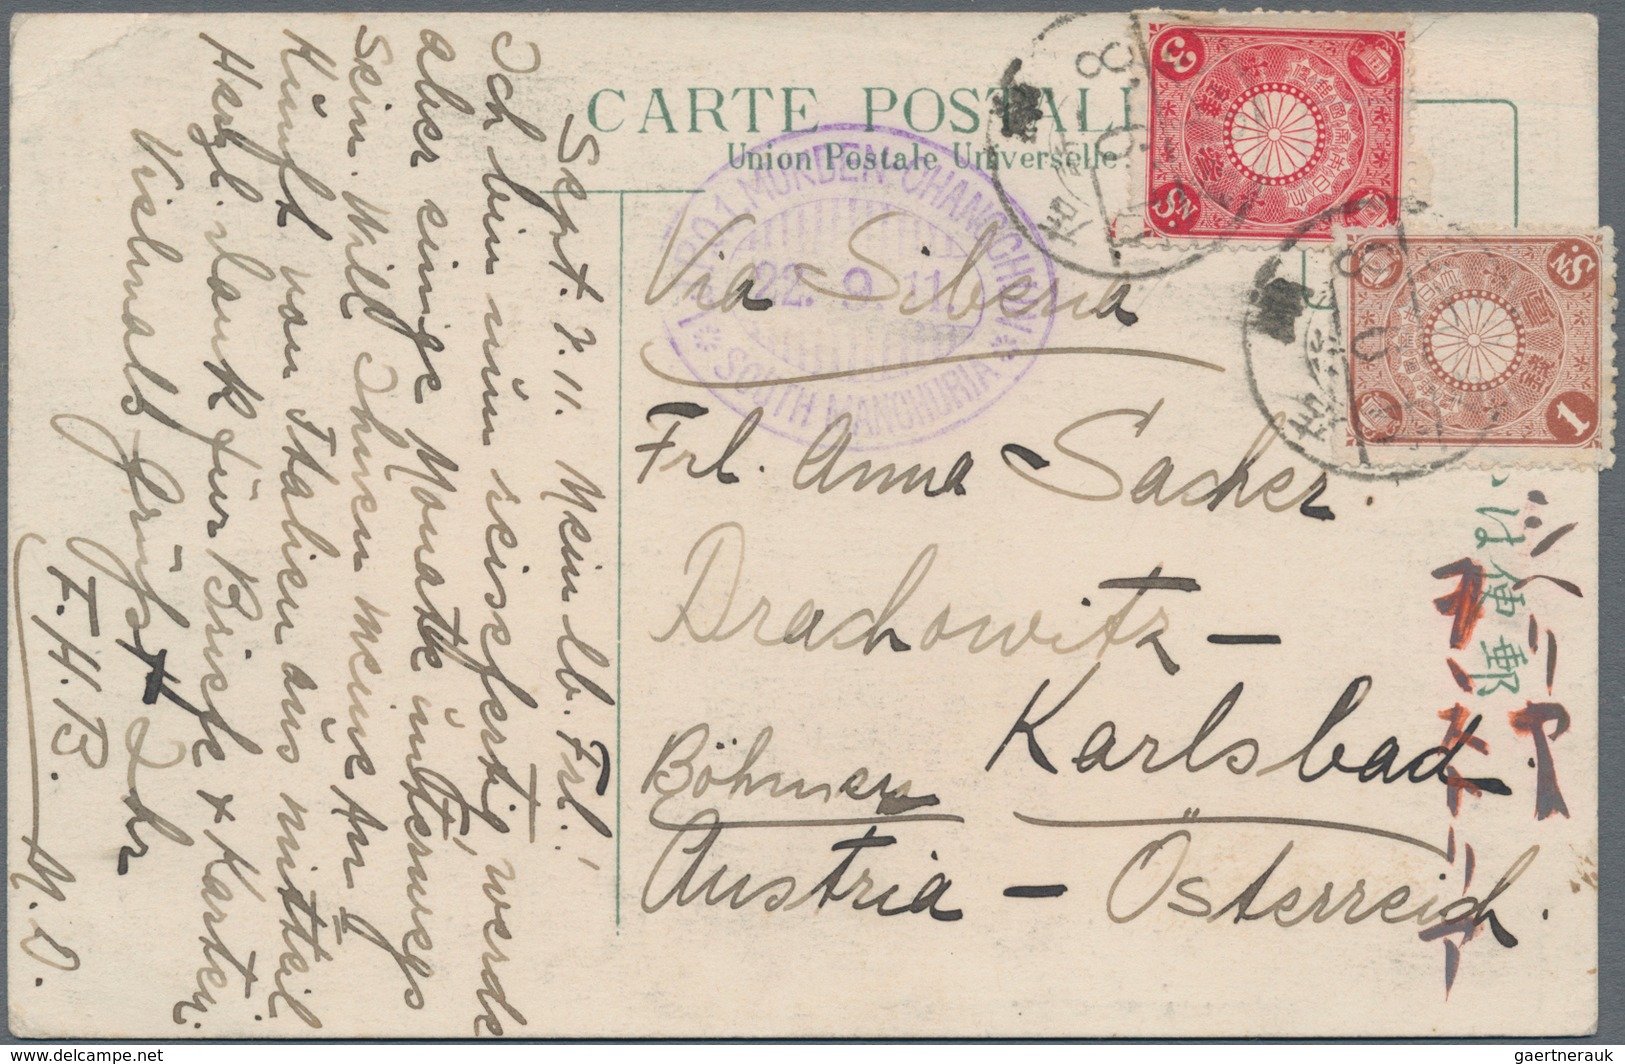 CARTE POSTALE
Union Postale Universelle
I.J.P.O.1. MUKDEN-CHANGCHUN
22. 9. 11
SOUTH MANCHURIA
3 Sn.
3 Sn.
1 Sn.
1
Via Siberia
Frl. Anna Sacher.
Drachowitz –
Karlsbad.
Böhmen
Austria – Österreich.
は便郵
Sept. 7. 11. Mein lb. Frl.!
Ich bin nun reisefertig, werde
aber einige Monate unterwegs
sein. Will Ihnen meine An
kunft von Italien aus mitteil
Herzl. Dank für Briefe + Karten.
Vielmals grüßt Ihr
F.H.B.
gaertnerauk
www.delcampe.net